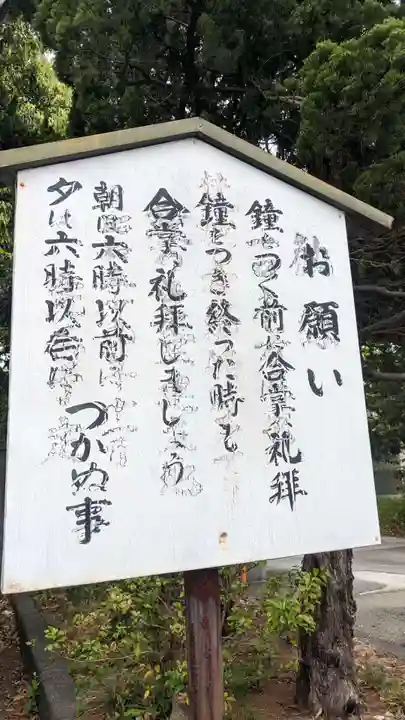 お願い
鐘をつく前に合掌礼拝
鐘をつき終った時も
合掌礼拝しましょう
朝は六時以前に
夕は六時以后は
づかぬ事